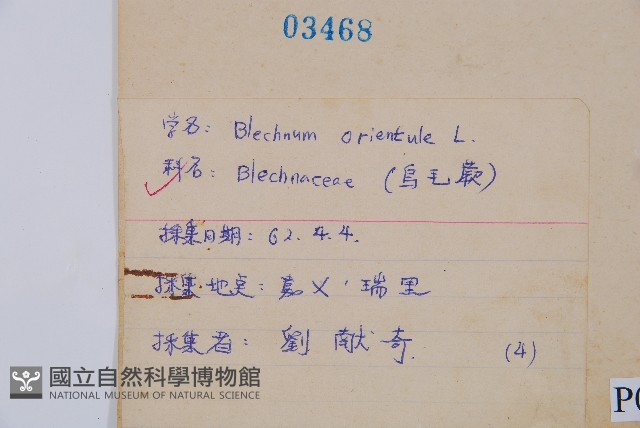 03468
学名: Blechnum orientule L.
科名: Blechnaceae (烏毛蕨)
採集日期: 62.4.4.
採集地点: 嘉义,瑞里
採集者: 劉献奇. (4)
國立自然科學博物館
NATIONAL MUSEUM OF NATURAL SCIENCE